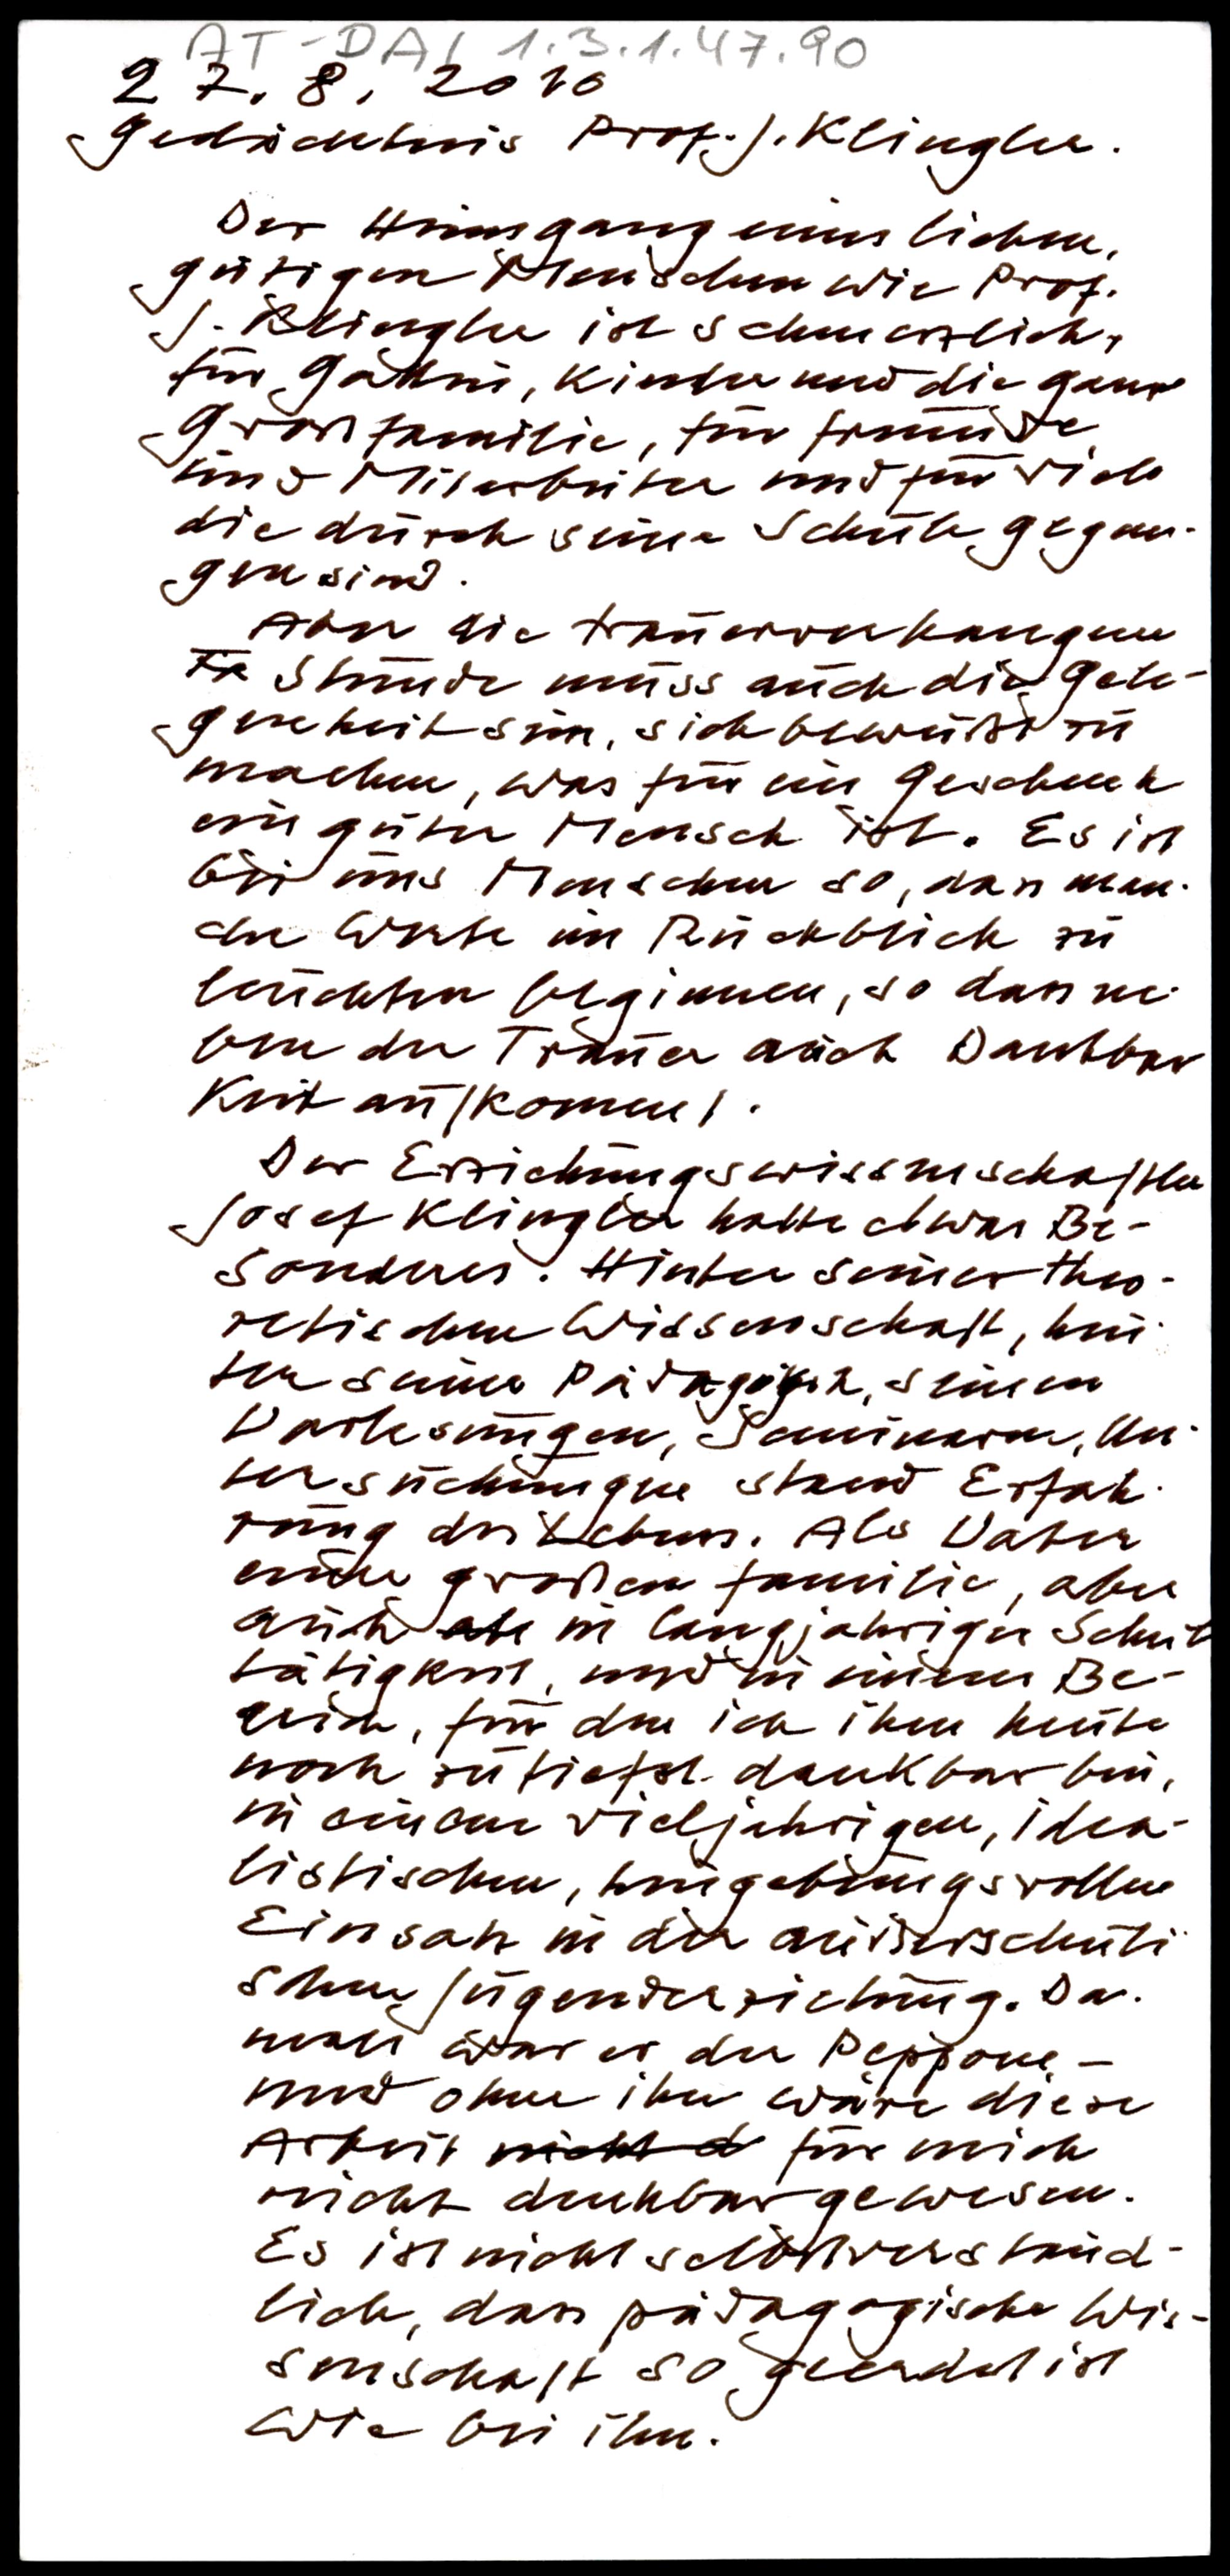 AT-DAI 1.3.1.47.90
27. 8. 2010
Gedächtnis Prof. J. Klingler.
Der Heimgang eines lieben,
gütigen Menschen wie Prof.
J. Klingler ist schmerzlich,
für Gattin, Kinder und die ganze
Großfamilie, für Freunde
und Mitarbeiter und für viele
die durch seine Schule gegan-
gen sind.
Aber die trauerverhangene
Stunde muss auch die Gele-
genheit sein, sich bewußt zu
machen, was für ein Geschenk
ein guter Mensch ist. Es ist
bei uns Menschen so, dass man-
che Werte im Rückblick zu
leuchten beginnen, so dass ne-
ben der Trauer auch Dankbar
keit aufkommt.
Der Erziehungswissenschaftler
Josef Klingler hatte etwas Be-
sonderes. Hinter seiner theo-
retischen Wissenschaft, hin-
ter seiner Pädagogik, seinen
Vorlesungen, Seminaren, Un-
tersuchungen stand Erfah-
rung des Lebens. Als Vater
einer großen Familie, aber
auch in langjähriger Schul
tätigkeit, und in einem Be-
reich, für den ich ihm heute
noch zutiefst dankbar bin,
in einem vieljährigen, idea-
listischen, hingebungsvollen
Einsatz in der außerschuli
schen Jugenderziehung. Da-
mals war er der Peppone –
und ohne ihn wäre diese
Arbeit nicht d für mich
nicht denkbar gewesen.
Es ist nicht selbstverständ-
lich, dass pädagogische Wis-
senschaft so geerdet ist
wie bei ihm.